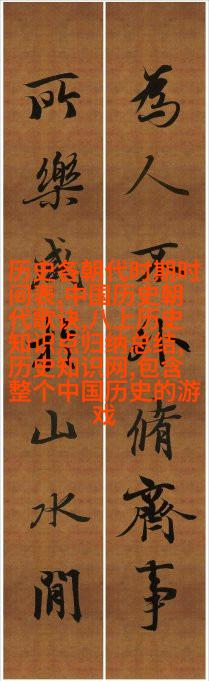 為人不外脩齊事
所樂山水間
历史各朝代时期时
间表,中国历史朝
代歌诀,八上历史
知识点归纳总结,
历史知识网,包含
整个中国历史的游
戏